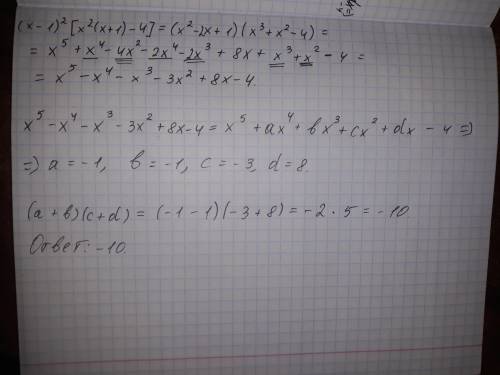 (x-1)² [x²(x+1)-4] = (x²-2x+1)(x³+x²-4) =
= x⁵ + x⁴ - 4x² - 2x⁴ - 2x³ + 8x + x³ + x² - 4 =
= x⁵ - x⁴ - x³ - 3x² + 8x - 4.
x⁵ - x⁴ - x³ - 3x² + 8x - 4 = x⁵ + ax⁴ + bx³ + cx² + dx - 4 =>
=> a = -1, b = -1, c = -3, d = 8.
(a+b)(c+d) = (-1-1)(-3+8) = -2 · 5 = -10
Ответ: -10.